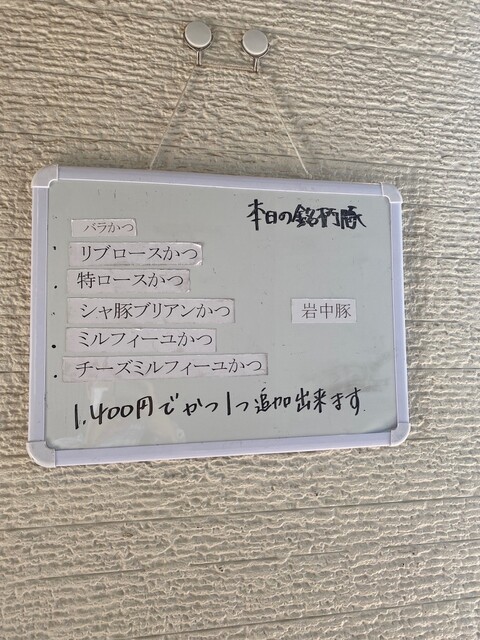 本日の銘柄豚
バラかつ
・リブロースかつ
・特ロースかつ
・シャ豚ブリアンかつ
岩中豚
・ミルフィーユかつ
・チーズミルフィーユかつ
1,400円でかつ1つ追加出来ます